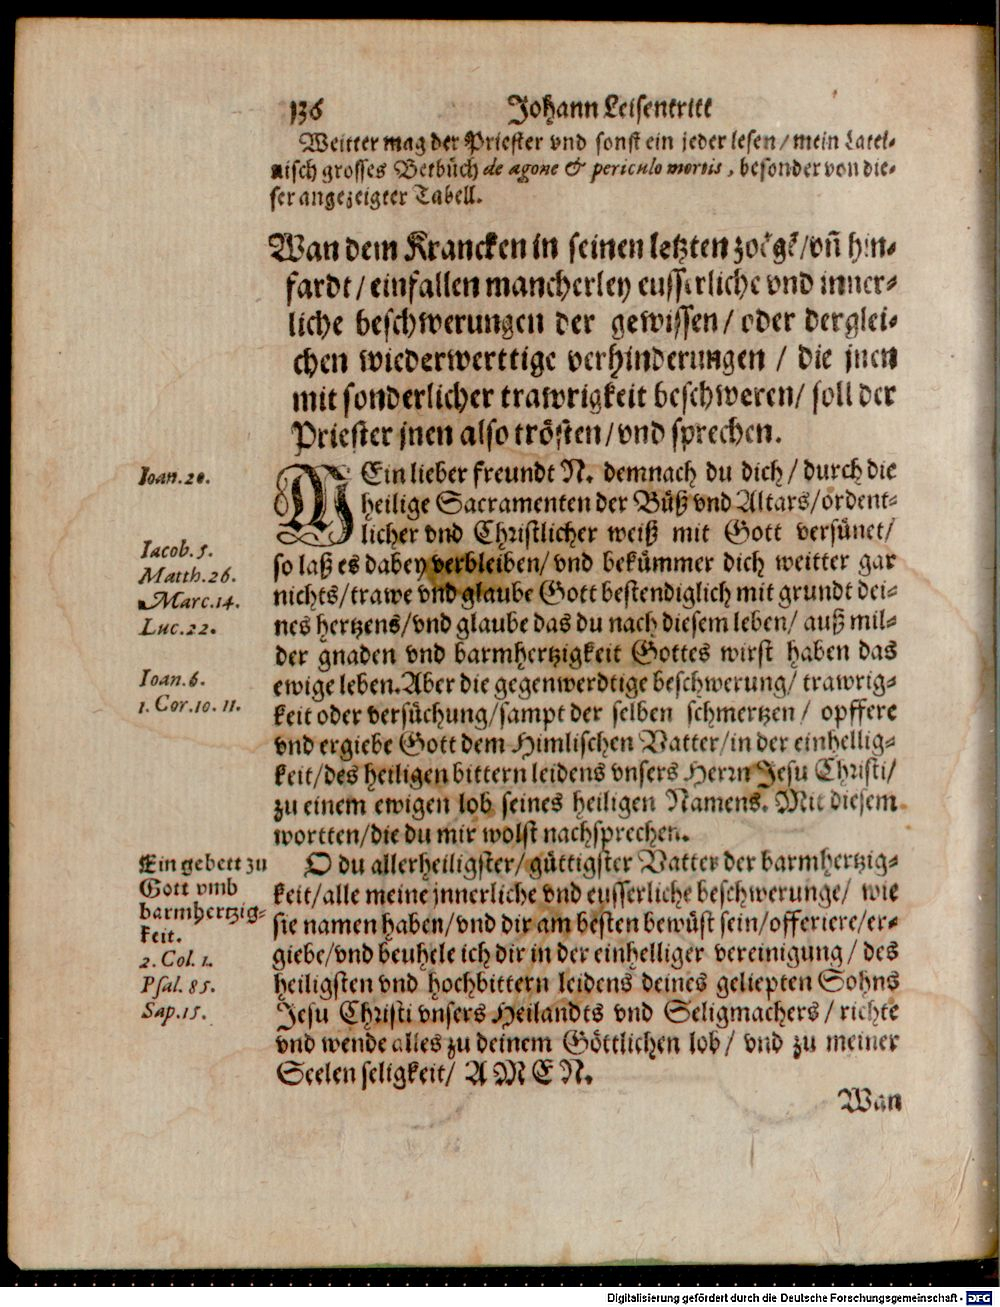 136 Johann Leisentritt
Weitter mag der Priester vnd sonst ein jeder lesen/mein Latei-
nisch grosses Betbůch de agone & periculo mortis, besonder von die-
ser angezeigter Tabell.
Wan dem Krancken in seinen letzten zoͤgẽ/vñ hin-
fardt/einfallen mancherley eusserliche vnd inner-
liche beschwerungen der gewissen/oder derglei-
chen wiederwerttige verhinderungen / die jnen
mit sonderlicher trawrigkeit beschweren/ soll der
Priester jnen also trösten/vnd sprechen.
MEin lieber freundt N. demnach du dich/durch die
heilige Sacramenten der Bůß vnd Altars/ordent-
licher vnd Christlicher weiß mit Gott versünet/
so laß es dabey verbleiben/vnd bekümmer dich weitter gar
nichts/trawe vnd glaube Gott bestendiglich mit grundt dei-
nes hertzens/vnd glaube das du nach diesem leben/ auß mil-
der gnaden vnd barmhertzigkeit Gottes wirst haben das
ewige leben. Aber die gegenwerdtige beschwerung/ trawrig-
keit oder versůchung/sampt der selben schmertzen/ opffere
vnd ergiebe Gott dem Himlischen Vatter/in der einhellig-
keit/des heiligen bittern leidens vnsers Herrn Jesu Christi/
zu einem ewigen lob seines heiligen Namens. Mit diesem
wortten/die du mir wolst nachsprechen.
O du allerheiligster/güttigster Vatter der barmhertzig-
keit/alle meine jnnerliche vnd eusserliche beschwerunge/ wie
sie namen haben/vnd dir am besten bewůst sein/offeriere/er-
giebe/vnd beuhele ich dir in der einhelliger vereinigung/ des
heiligsten vnd hochbittern leidens deines geliepten Sohns
Jesu Christi vnsers Heilandts vnd Seligmachers/ richte
vnd wende alles zu deinem Göttlichen lob/ vnd zu meiner
Seelen seligkeit/ AMEN.
Wan
Ioan.20.
Iacob.5.
Matth.26.
Marc.14.
Luc.22.
Ioan.6.
1. Cor.10. 11.
Ein gebett zu
Gott vmb
barmhertzig-
keit.
2. Col. 1.
Psal. 85.
Sap.15.
Digitalisierung gefördert durch die Deutsche Forschungsgemeinschaft - DFG